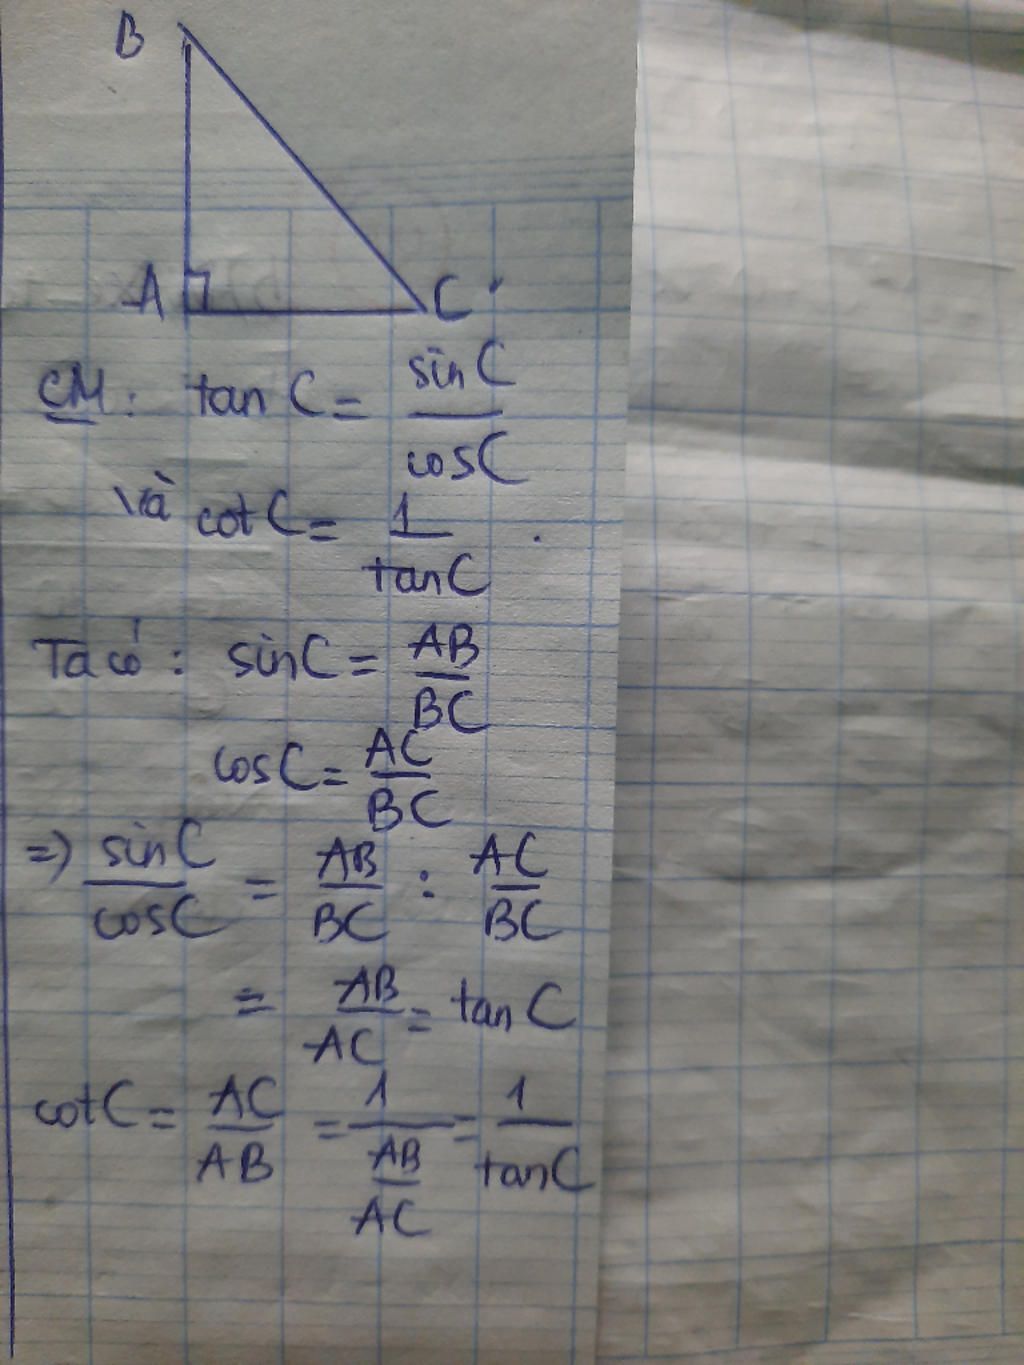 B
A
C
CM: tan C = sin C / cos C
và cot C = 1 / tan C.
Ta có: sin C = AB / BC
cos C = AC / BC
=> sin C / cos C = AB / BC : AC / BC
= AB / AC = tan C
cot C = AC / AB = 1 / (AB / AC) = 1 / tan C